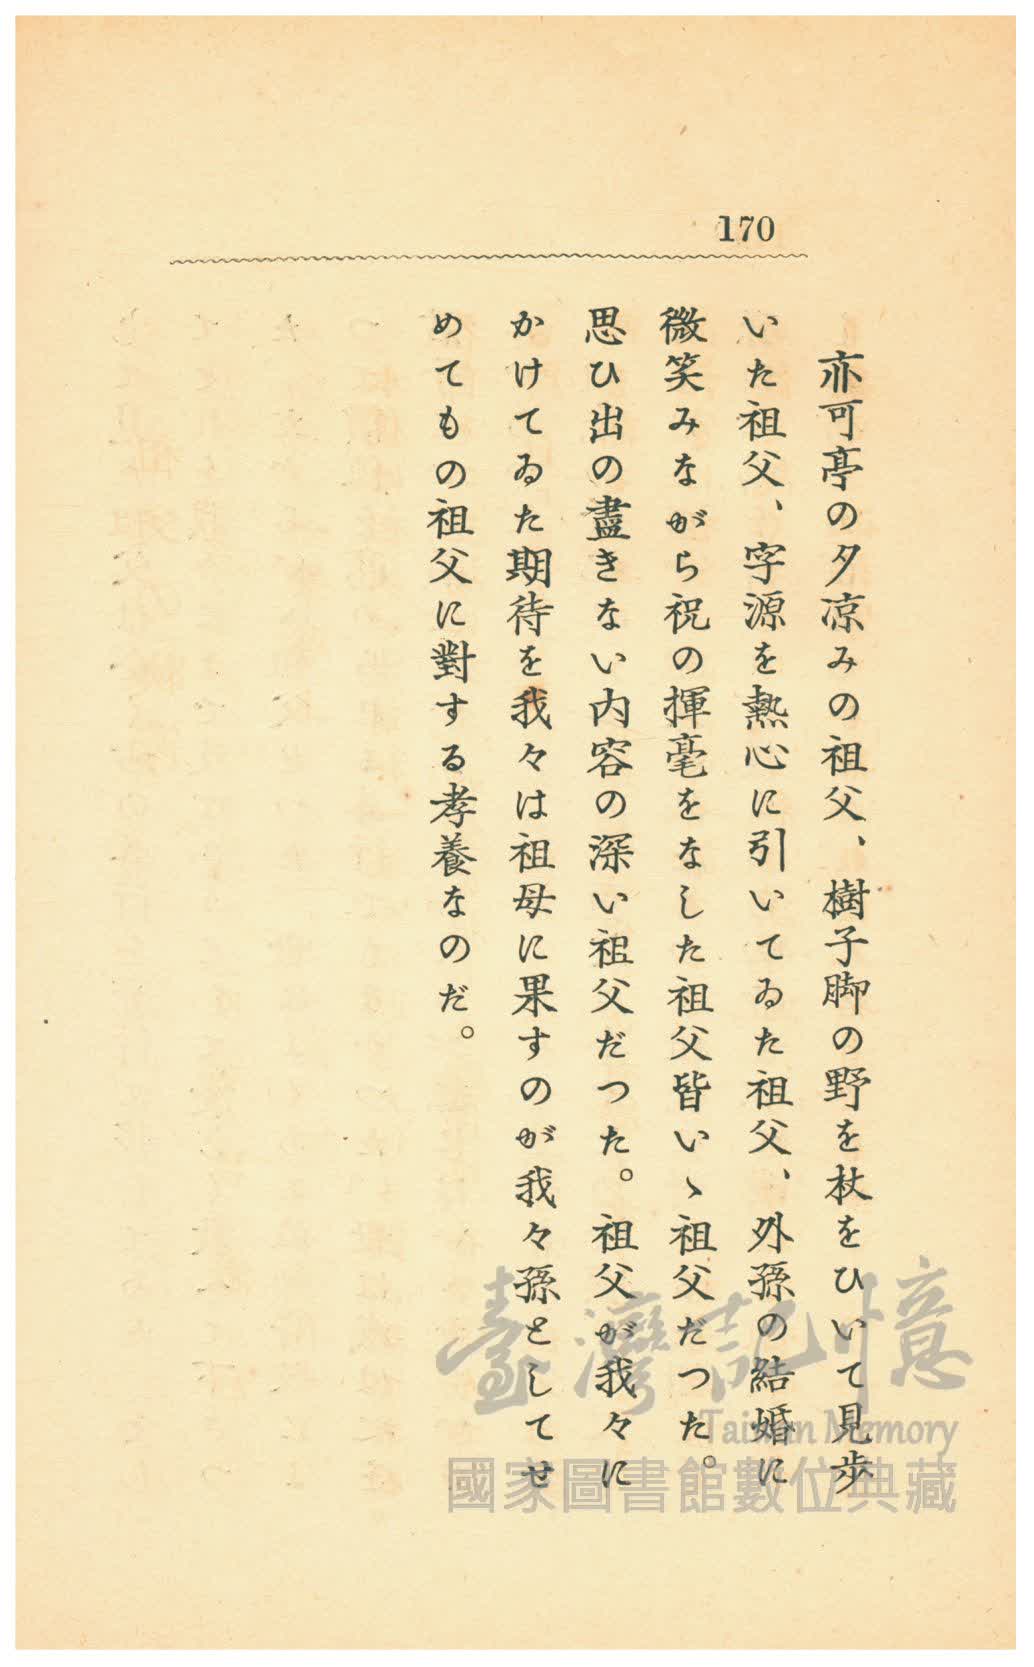 170
亦可亭の夕凉みの祖父、樹子脚の野を杖をひいて見步
いた祖父、字源を熱心に引いてゐた祖父、外孫の結婚に
微笑みながら祝の揮毫をなした祖父皆いゝ祖父だつた。
思ひ出の盡きない内容の深い祖父だつた。祖父が我々に
かけてゐた期待を我々は祖母に果すのが我々孫としてせ
めてもの祖父に對する孝養なのだ。
臺灣記憶
Taiwan Memory
國家圖書館數位典藏